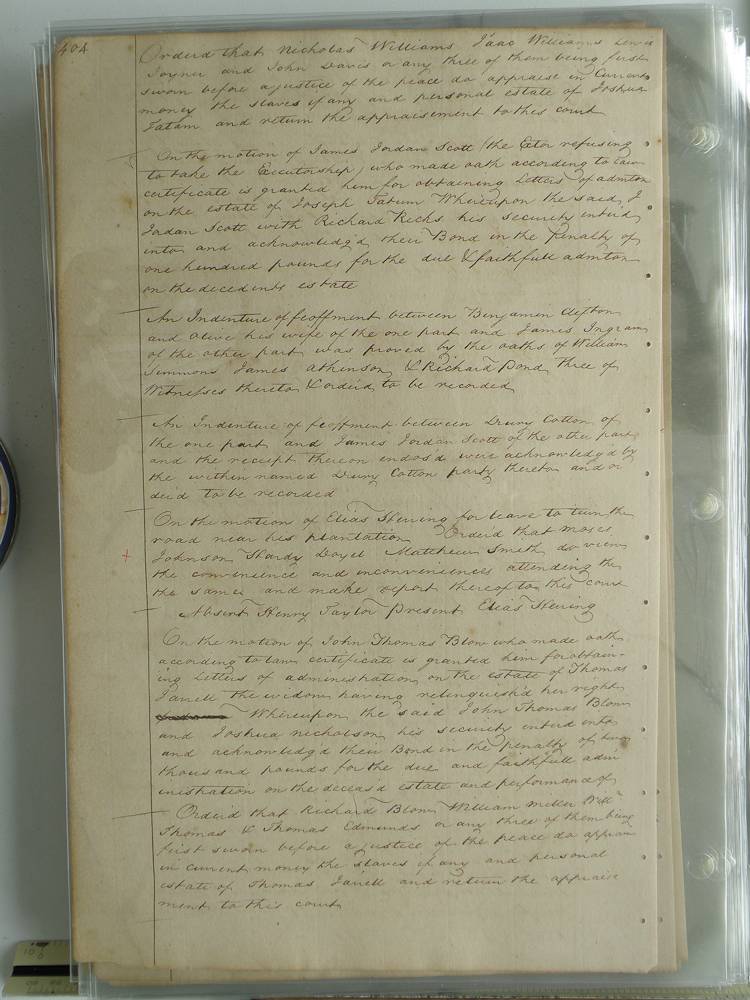 404
Orderd that Nicholas Williams Isaac Williams Lewis
Joyner and John Davis or any three of them being first
sworn before a justice of the peace do appraise in Current
money the slaves if any and personal estate of Joshua
Tatum and return the appraisement to this court
On the motion of James Jordan Scott (the Extor refusing
to take the Executorship) who made oath according to law
certificate is granted him for obtaining Letters of admton
on the estate of Joseph Tatum Whereupon the said J
Jordan Scott with Richard Ricks his security enterd
into and acknowledgd their Bond in the Penalty of
one hundred pounds for the due & faithfull admton
on the decedents estate
An Indenture of feoffment between Benjamin Clifton
and Olive his wife of the one part and James Ingram
of the other part was proved by the oaths of William
Simmons James Atkinson & Richard Pond three of
Witnesses thereto & orderd to be recorded
An Indenture of feoffment between Drury Cotton of
the one part and James Jordan Scott of the other part
and the receipt thereon endosd were acknowledgd by
the within named Drury Cotton party thereto and or
derd to be recorded
On the motion of Elias Herring for leave to turn the
road near his plantation Orderd that Moses
Johnson Hardy Doyel Matthew Smith do view
the convenience and inconveniences attending the
the same and make report thereof to this court
Absent Henry Taylor Present Elias Herring
On the motion of John Thomas Blow who made oath
according to law certificate is granted him for obtain-
ing Letters of administration on the estate of Thomas
Jarrell the widow having relinquishd her right
Whereupon the said John Thomas Blow
and Joshua Nicholson his security enterd into
and acknowledgd their Bond in the Penalty of two
thousand pounds for the due and faithfull adm
inistration on the deceasd estate and performance of
Orderd that Richard Blow William Miller Will
Thomas & Thomas Edmunds or any three of them being
first sworn before a justice of the peace do appraise
in current money the slaves if any and personal
estate of Thomas Jarrell and return the appraise
ment to this court